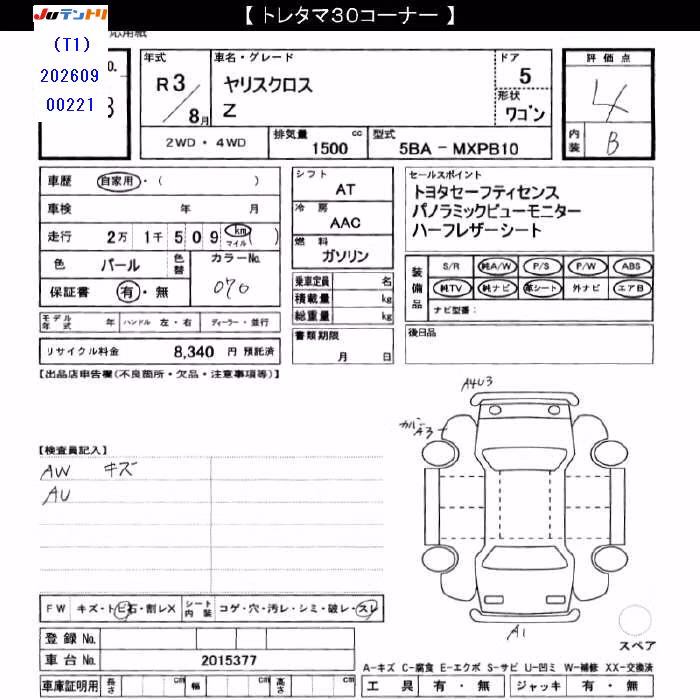 【 トレタマ30コーナー 】
JUテントリ
(T1)
202609
00221
応用紙
o.
3
年式
R 3 / 8 月
車名・グレード
ヤリスクロス
Z
ドア
5
形状
ワゴン
評価点
4
内装
B
2WD ・ 4WD
排気量
1500 cc
型式
5BA − MXPB10
車歴
自家用 ・ ( )
車検
年 月
走行
2万 1千 5 0 9 km マイル ( )
色
パール
色替
カラーNo.
070
保証書
有 ・ 無
モデル年式 年 ハンドル 左 ・ 右 ディーラー ・ 並行
リサイクル料金 8,340 円 預託済
シフト
AT
冷房
AAC
燃料
ガソリン
乗車定員 名
積載量 kg
総重量 kg
書類期限
月 日
セールスポイント
トヨタセーフティセンス
パノラミックビューモニター
ハーフレザーシート
装備品
S/R 純A/W P/S P/W ABS
純TV 純ナビ 革シート 外ナビ エアB
ナビ型番:
後日品
【出品店申告欄(不良箇所・欠品・注意事項等)】
【検査員記入】
AW キズ
AU
A4U3
カバー A3
A1
スペア
FW キズ・トビ石・割レX
シート内装 コゲ・穴・汚レ・シミ・破レ・スレ
登録 No.
車台 No. 2015377
車庫証明用 長さ cm 幅 cm 高さ cm
A−キズ C−腐食 E−エクボ S−サビ U−凹ミ W−補修 XX−交換済
工具 有 ・ 無 ジャッキ 有 ・ 無